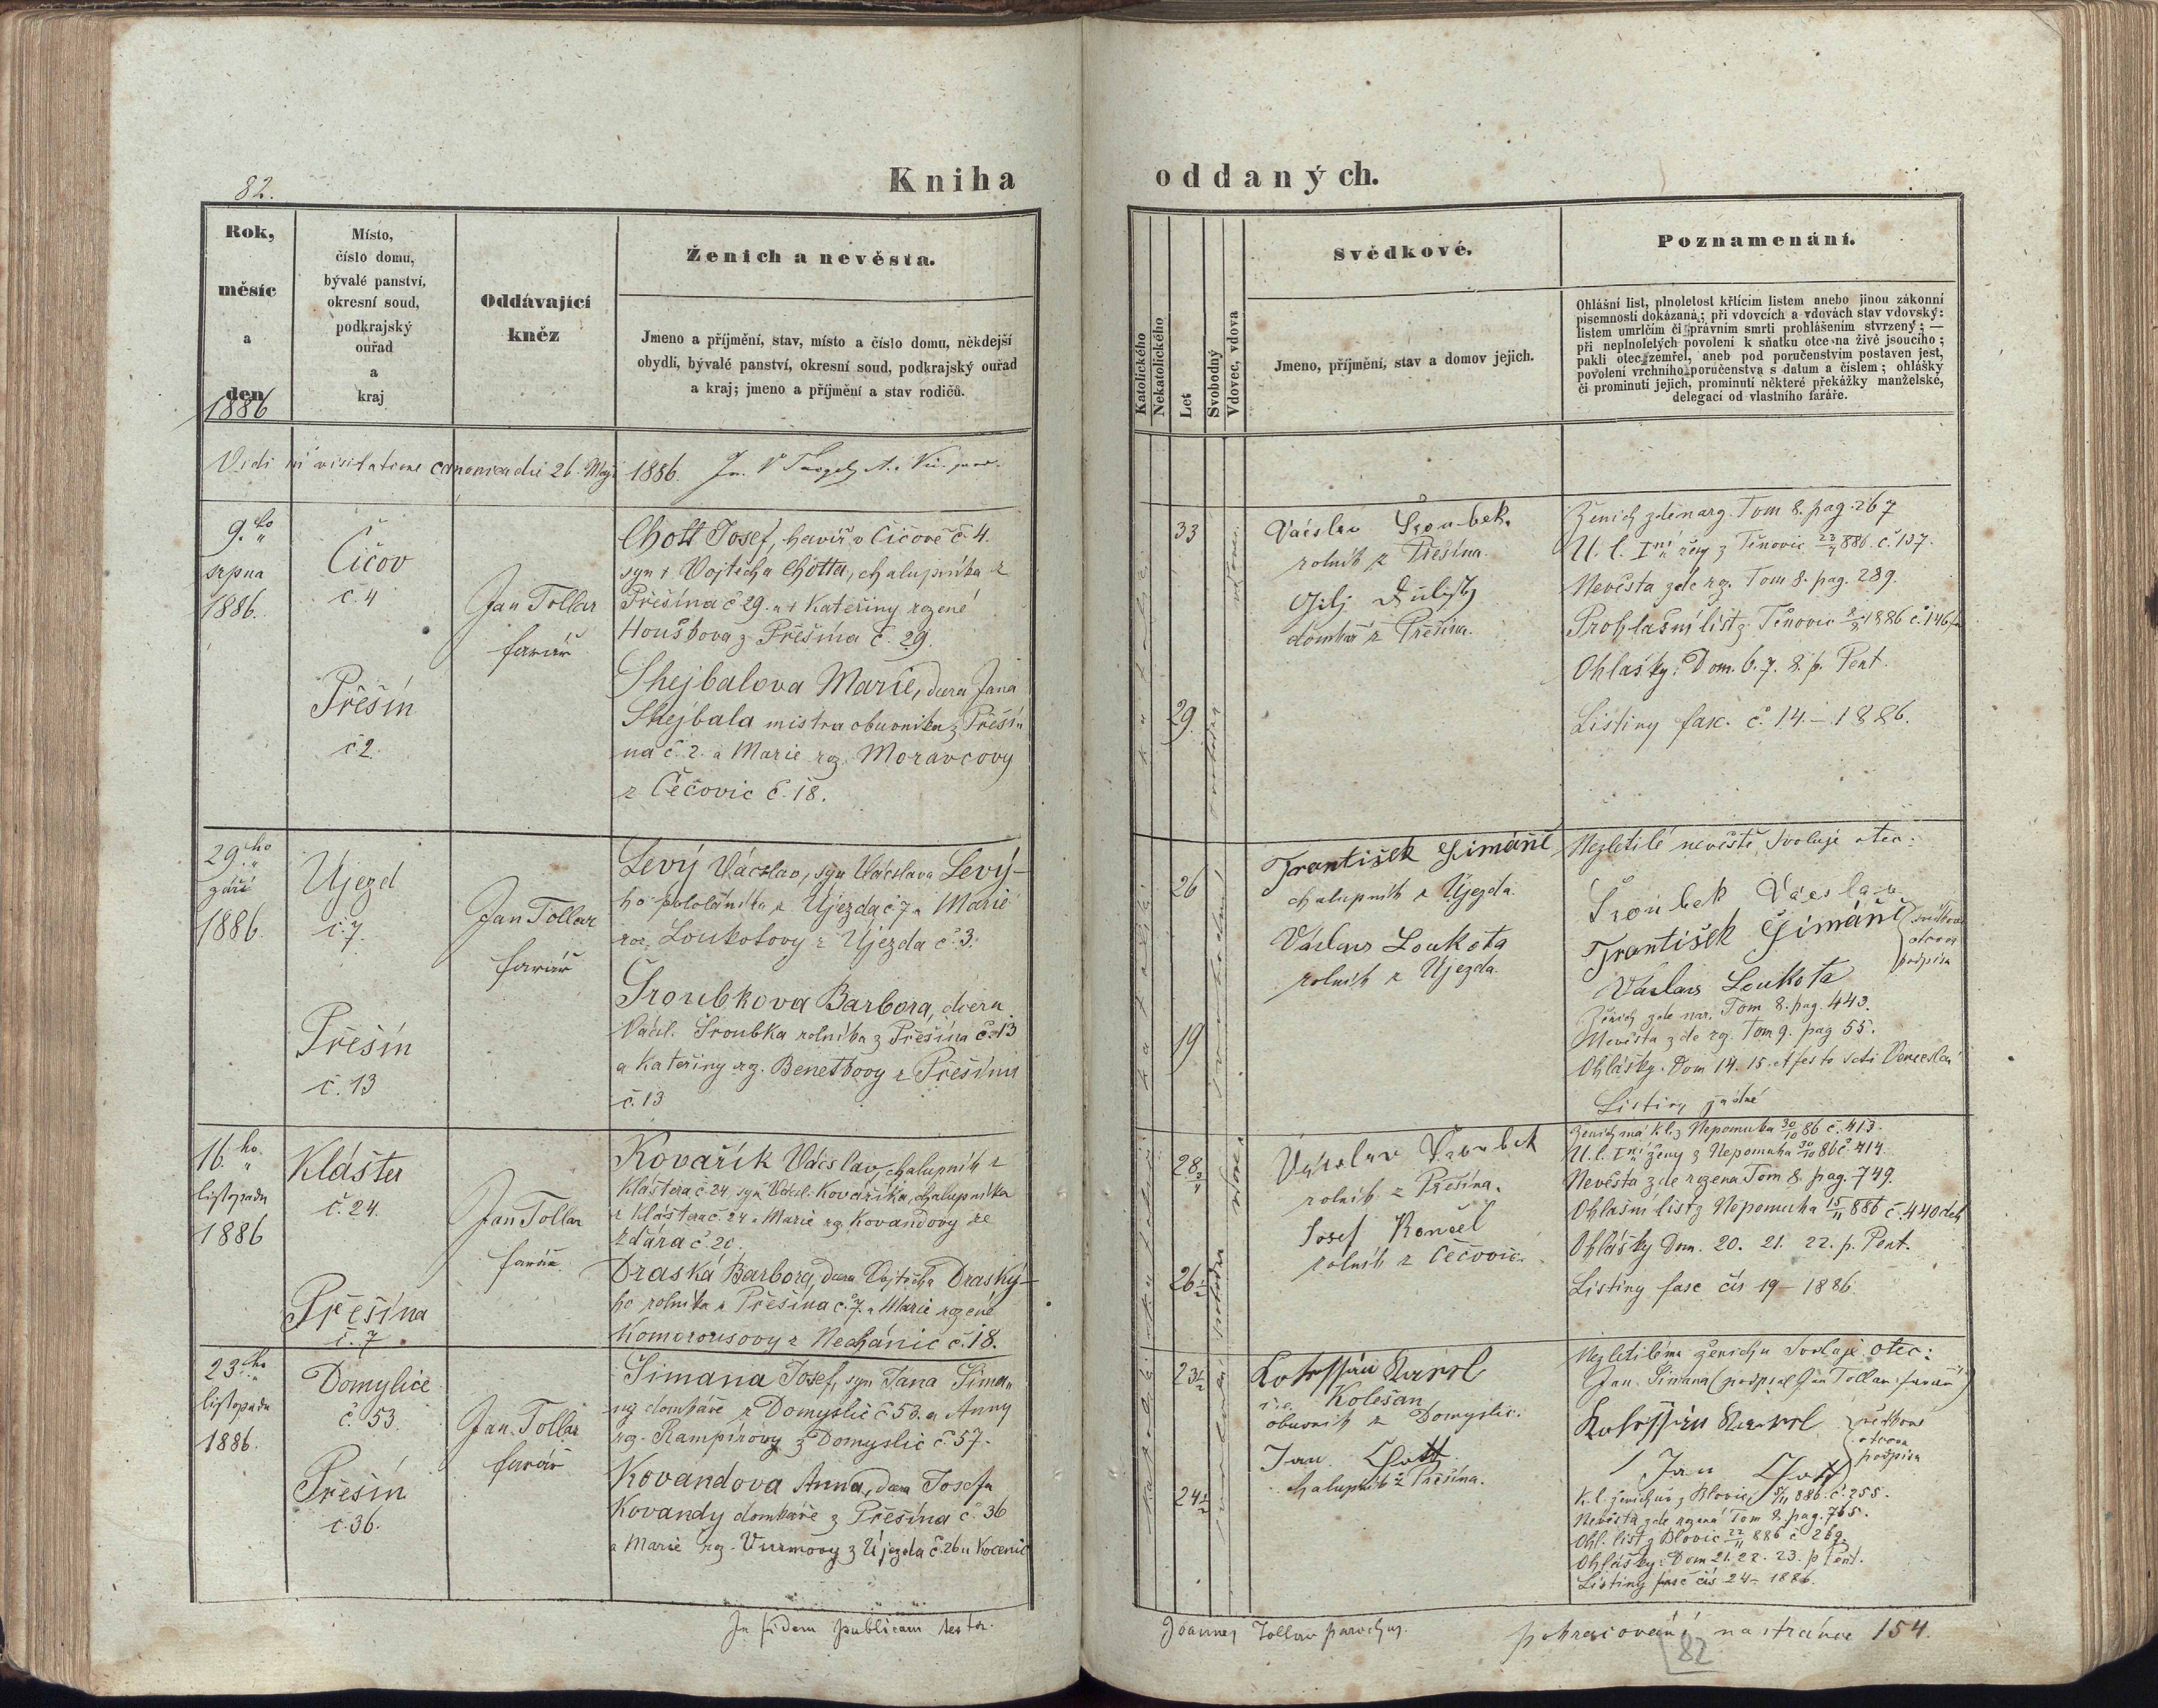 82.
Kniha oddaných.
Rok,
měsíc
a
den
1886
Místo,
číslo domu,
bývalé panství,
okresní soud,
podkrajský
ouřad
a
kraj
Oddávající
kněz
Ženich a nevěsta.
Jmeno a příjmění, stav, místo a číslo domu, někdejší
obydlí, bývalé panství, okresní soud, podkrajský ouřad
a kraj; jmeno a příjmění a stav rodičů.
Katolického
Nekatolického
Let
Svobodný
Vdovec, vdova
Svědkové.
Jmeno, příjmění, stav a domov jejich.
Poznamenání.
Ohlášní list, plnoletost křtícím listem anebo jinou zákonní
písemností dokázaná; při vdovcích a vdovách stav vdovský:
listem umrlčím či právním smrti prohlášením stvrzený; —
při neplnoletých povolení k sňatku otce na živě jsoucího;
pakli otec zemřel, aneb pod poručenstvím postaven jest,
povolení vrchního poručenstva s datum a číslem; ohlášky
či prominutí jejich, prominutí některé překážky manželské,
delegací od vlastního faráře.
Vidi in visitatione canonica die 26. Maji 1886.
9.ho
srpna
1886.
Čičov
č. 4
Přešín
č 2.
Jan Tollar
farář
Chott Josef, havíř v Čičově č. 4.
syn † Vojtěcha Chotta, chalupníka z
Přešína č 29. a † Kateřiny rozené
Houškova z Přešína č. 29.
Shejbalova Marie, dcera Jana
Shejbala mistra obuvníka z Přeší-
na č. 2. a Marie rz. Moravcovy
z Čečovic č. 18.
33
29.
Václav Šroubek
rolník z Přešína.
domkář z Přešína.
Ženich zde narz. Tom 8. pag. 267
U. l. Iní ženy z Těnovic 886. č. 137.
Nevěsta zde rz. Tom 8. pag. 289.
Prohlašní list z Těnovic 1886 č. 146
Ohlášky: Dom. 6. 7. 8. p. Pent.
Listiny fasc. č. 14. – 1886.
29.ho
září
1886.
Ujezd
č. 7.
Přešín
č. 13
Jan Tollar
farář
Levý Václav, syn Václava Levý-
ho pololáníka z Újezda č 7 a Marie
roz. Loukotovy z Újezda č. 3.
Šroubkova Barbora, dcera
Václ. Šroubka rolníka z Přešína č. 13
a Kateřiny rz. Benetkovy z Přešína
č. 13
26
19
František Šimáně
chalupník z Újezda.
Václav Loukota
rolník z Újezda.
Nezletilé nevěstě svoluje otec:
Šroubek Václav
František Šimáně
Václav Loukota
svědkové
otcova
podpisu
Ženich zde nar. Tom 8. pag. 443.
Nevěsta zde rz. Tom 9. pag 55.
Ohlášky. Dom 14. 15. et festo Scti Venceslai
Listiny žádné
16.ho
listopadu
1886
Klášter
č. 24.
Přešína
č. 7
Jan Tollar
farář.
Kovařík Václav, chalupník z
Kláštera č. 24, syn Václ. Kovaříka, chalupníka
z Kláštera č. 24 a Marie rz. Kovandovy ze
Žďára č. 20.
Draská Barbora, dcera Vojtěcha Draský-
ho rolníka z Přešína č. 7. a Marie rozené
Komorousovy z Nechánic č. 18.
28 3/4
26 1/2
Václav Šroubek
rolník z Přešína.
Josef
rolník z Čečovic.
Ženich má kl. z Nepomuka 30/10 86 č. 413.
U. l. Iní ženy z Nepomuka 30/10 86 č 414.
Nevěsta zde rozena Tom 8. pag. 749.
Ohlašní list z Nepomuka 15/11 886 č. 440
Ohlášky Dom. 20. 21. 22. p. Pent.
Listiny fasc čís 19 – 1886
23.ho
listopadu
1886.
Domyslice
č. 53.
Přešín
č. 36.
Jan Tollar
farář
Šimana Josef, syn Jana Šima-
ny domkáře z Domyslic č 53. a Anny
rz. Rampírovy z Domyslic č. 57.
Kovandova Anna, dcera Josefa
Kovandy domkáře z Přešína č. 36
a Marie rz. Vurmovy z Újezda č. 26
23 1/2
24 1/2
Kolešan
obuvník z Domyslic.
Jan Chott
chalupník z Přešína.
Nezletilému ženichu svoluje otec:
Jan Šimana (podpsal Jan Tollar farář)
Jan Chott
svědkové
otcova
podpisu
K. l. ženichův z Blovic 5/11 886. č. 255.
Nevěsta zde rozená Tom 8. pag. 765.
Ohl. list z Blovic 22/11 886 č 269
Ohlášky: Dom 21. 22. 23. p. Pent.
Listiny fasc čís 24 – 1886.
In fidem publicam testor.
Joannes Tollar parochus.
pokračování na stránce 154.
82